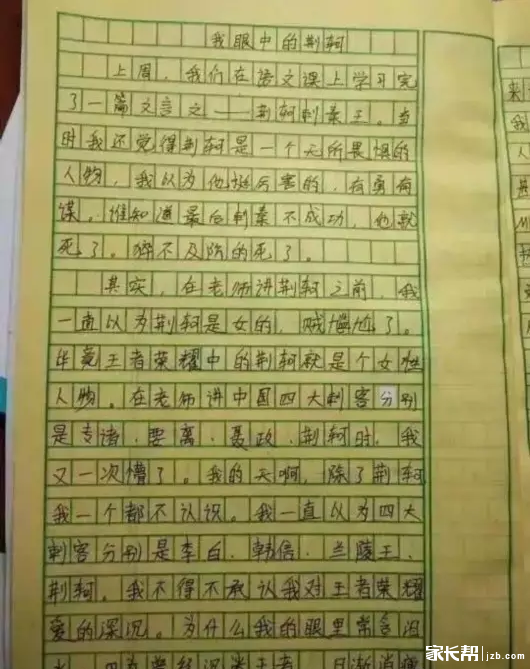 我眼中的荆轲
上周，我们在语文课上学习完
了一篇文言文——荆轲刺秦王。当
时我还觉得荆轲是一个无所畏惧的
人物，我以为他挺厉害的，有勇有
谋。谁知道最后刺秦不成功，他就
死了。猝不及防的死了。
其实，在老师讲荆轲之前，我
一直以为荆轲是女的，贼尴尬了。
毕竟王者荣耀中的荆轲就是个女性
人物。在老师讲中国四大刺客分别
是专诸、要离、聂政、荆轲时，我
又一次懵了。我的天啊，除了荆轲
我一个都不认识。我一直以为四大
刺客分别是李白、韩信、兰陵王、
荆轲。我不得不承认我对王者荣耀
爱的深沉。为什么我的眼里常含泪
水，因为曾经沉迷王者，日渐消瘦
来
我
人
家长帮 jzb.com